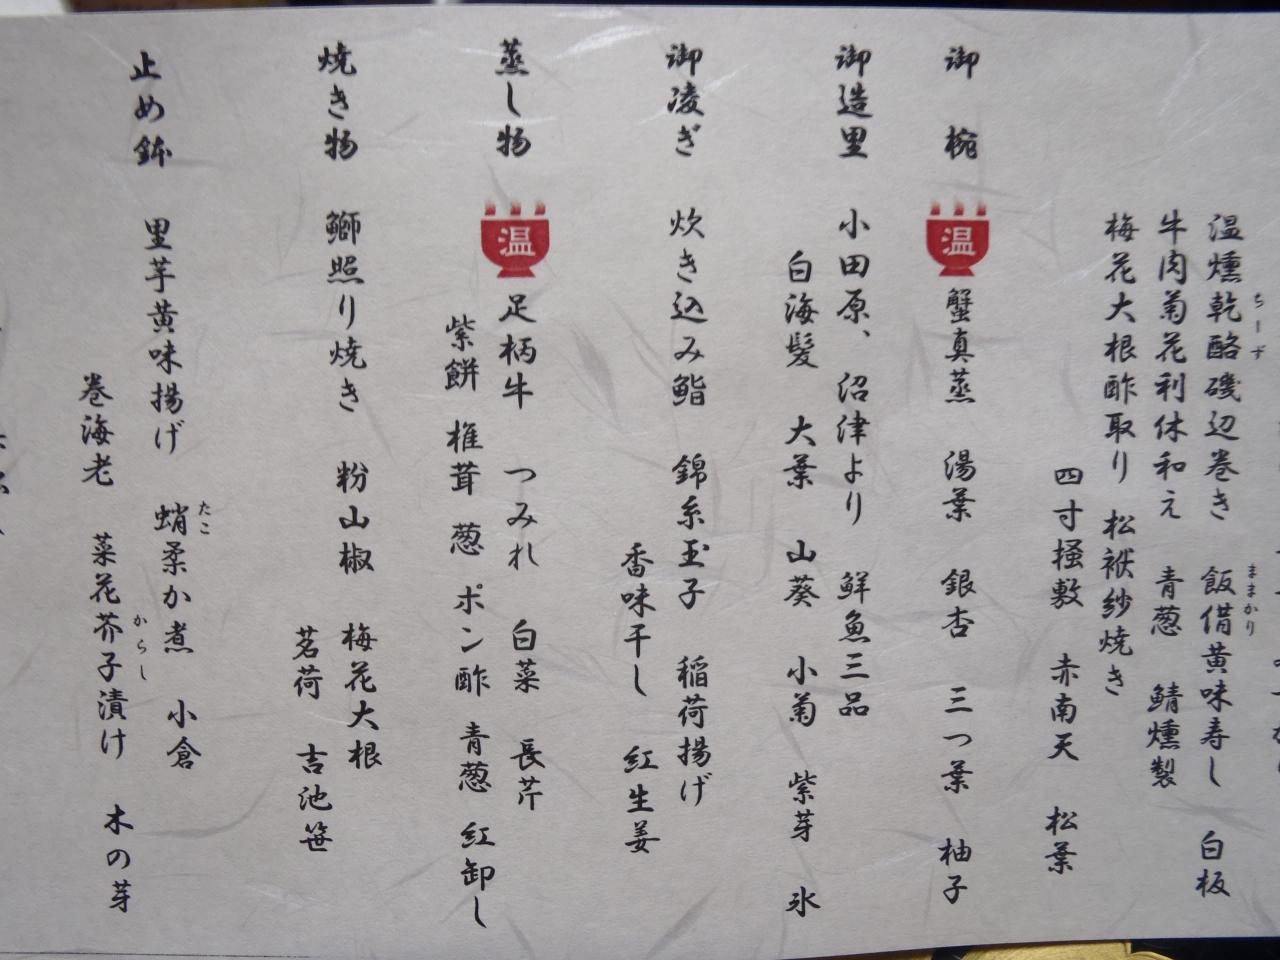 温燻乾酪磯辺巻き 飯借黄味寿し 白板
ちーず
ままかり
牛肉菊花利休和え 青葱 鯖燻製
梅花大根酢取り 松袱紗焼き
四寸掻敷 赤南天 松葉
御椀 温 蟹真蒸 湯葉 銀杏 三つ葉 柚子
御造里 小田原、沼津より 鮮魚三品
白海髪 大葉 山葵 小菊 紫芽 氷
御凌ぎ 炊き込み鮨 錦糸玉子 稲荷揚げ
香味干し 紅生姜
蒸し物 温 足柄牛 つみれ 白菜 長芹
紫餅 椎茸 葱 ポン酢 青葱 紅卸し
焼き物 鰤照り焼き 粉山椒 梅花大根
茗荷 吉池笹
止め鉢 里芋黄味揚げ 蛸柔か煮 小倉
たこ
巻海老 菜花芥子漬け 木の芽
からし